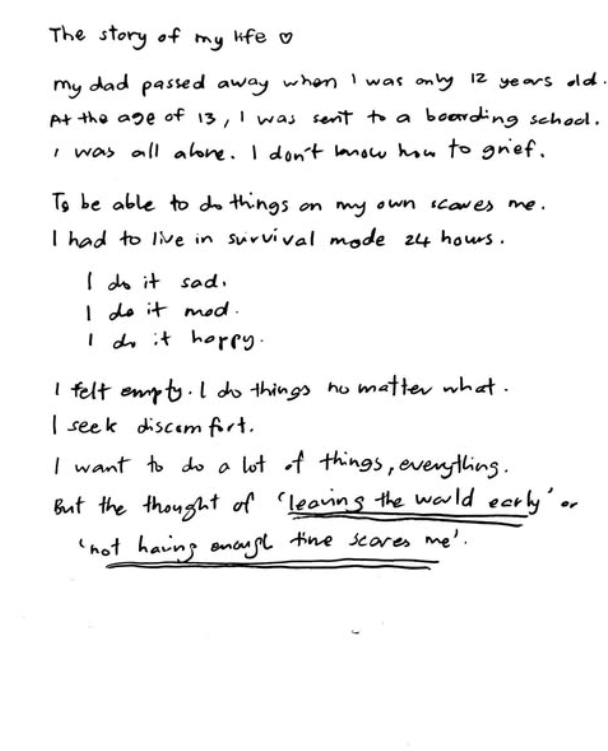 The story of my life ♡
my dad passed away when I was only 12 years old.
At the age of 13, I was sent to a boarding school.
I was all alone. I don't know how to grief.
To be able to do things on my own scares me.
I had to live in survival mode 24 hours.
I do it sad.
I do it mad.
I do it happy.
I felt empty. I do things no matter what.
I seek discomfort.
I want to do a lot of things, everything.
But the thought of 'leaving the world early' or
'not having enough time scares me'.